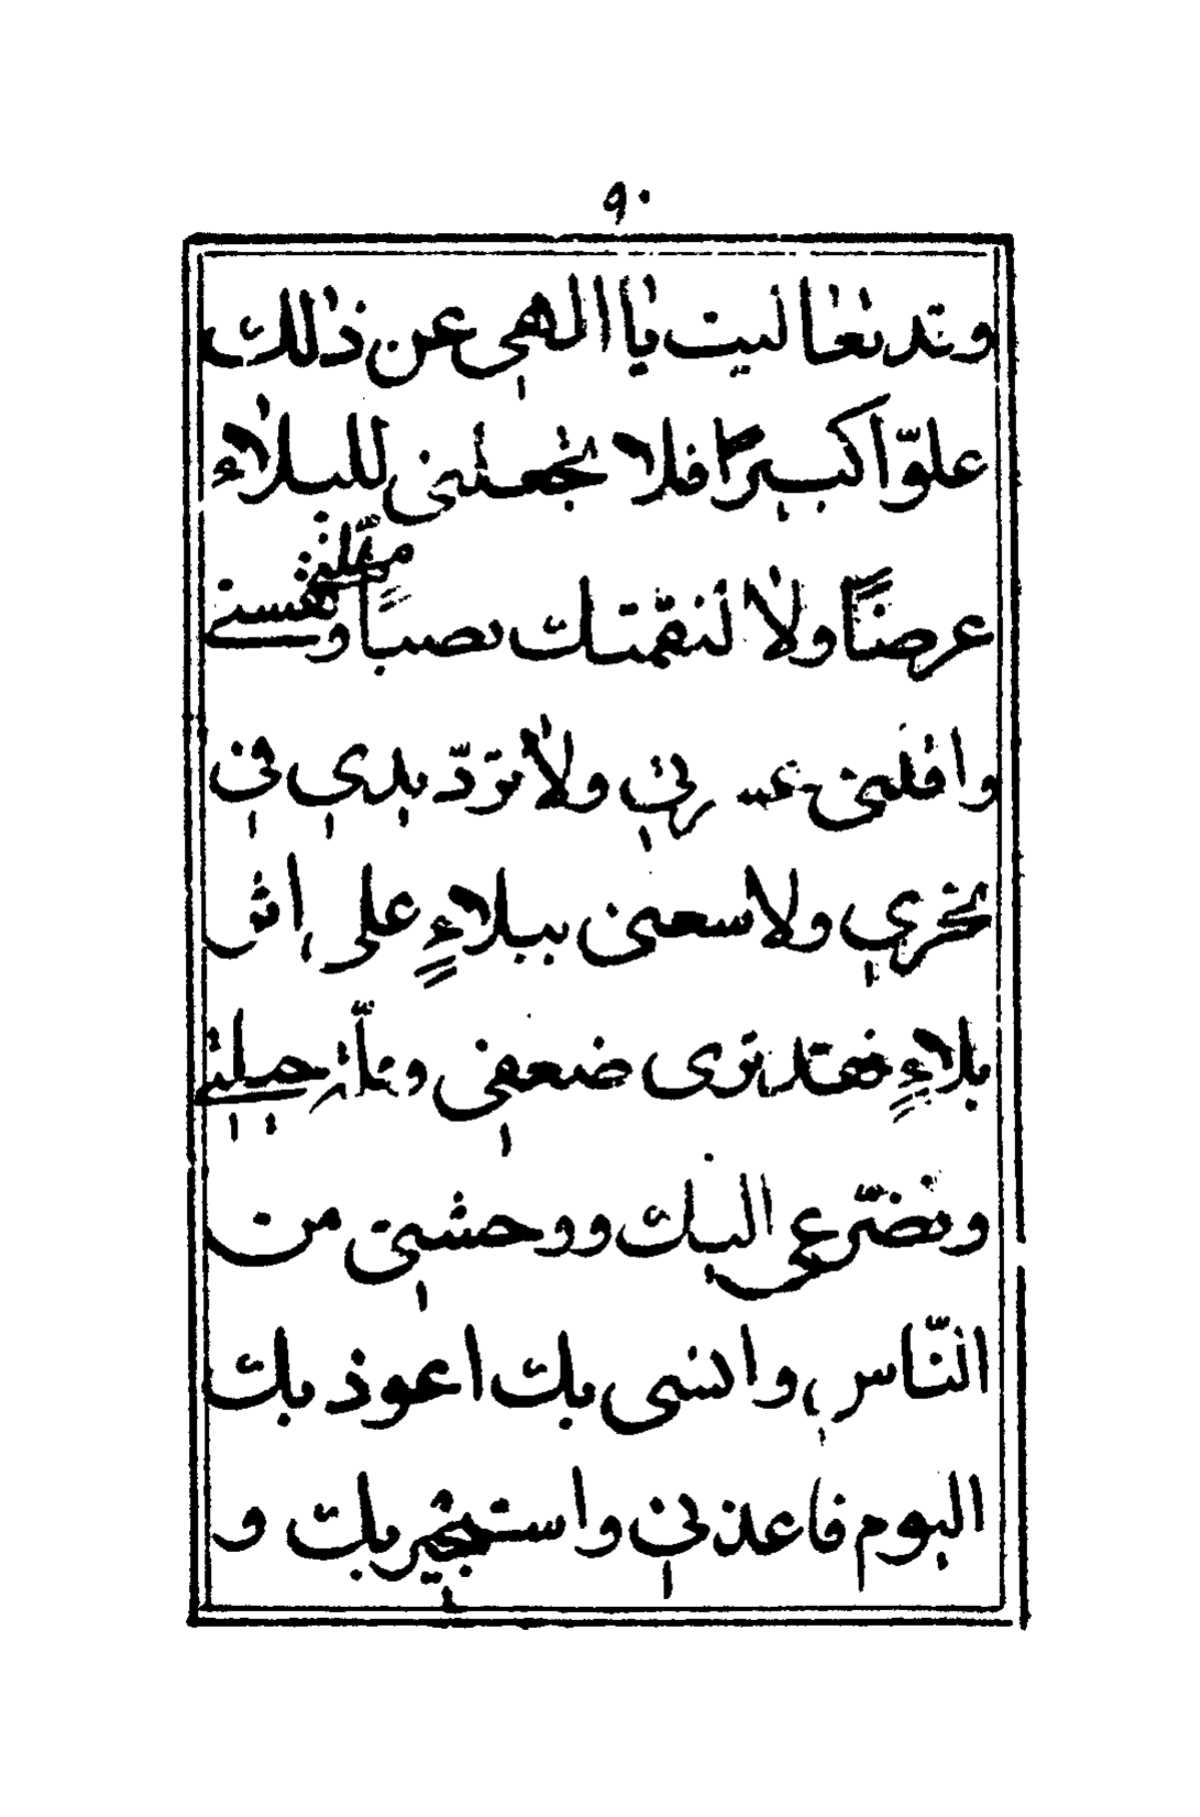 ٩٠
وقد تعاليت يا الهي عن ذلك
علوّا كبيرًا فلا تجعلني للبلاء
عرضًا ولا لنقمتك نصبًا ومهّلني ونفّسني
واقلني عثرتي ولا تردّ يدي في
نحري ولا تتبعني ببلاءٍ على اثر
بلاءٍ فقد ترى ضعفي وقلّة حيلتي
وتضرّعي اليك ووحشتي من
النّاس وانسي بك اعوذ بك
اليوم فاعذني واستجير بك و